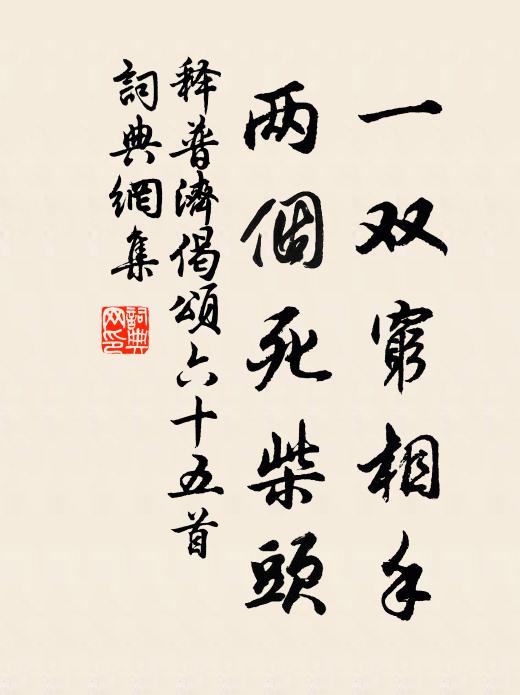 一双窮相手
两個死柴頭
释普濟偈頌六十五首
詞典網集
詞典网印